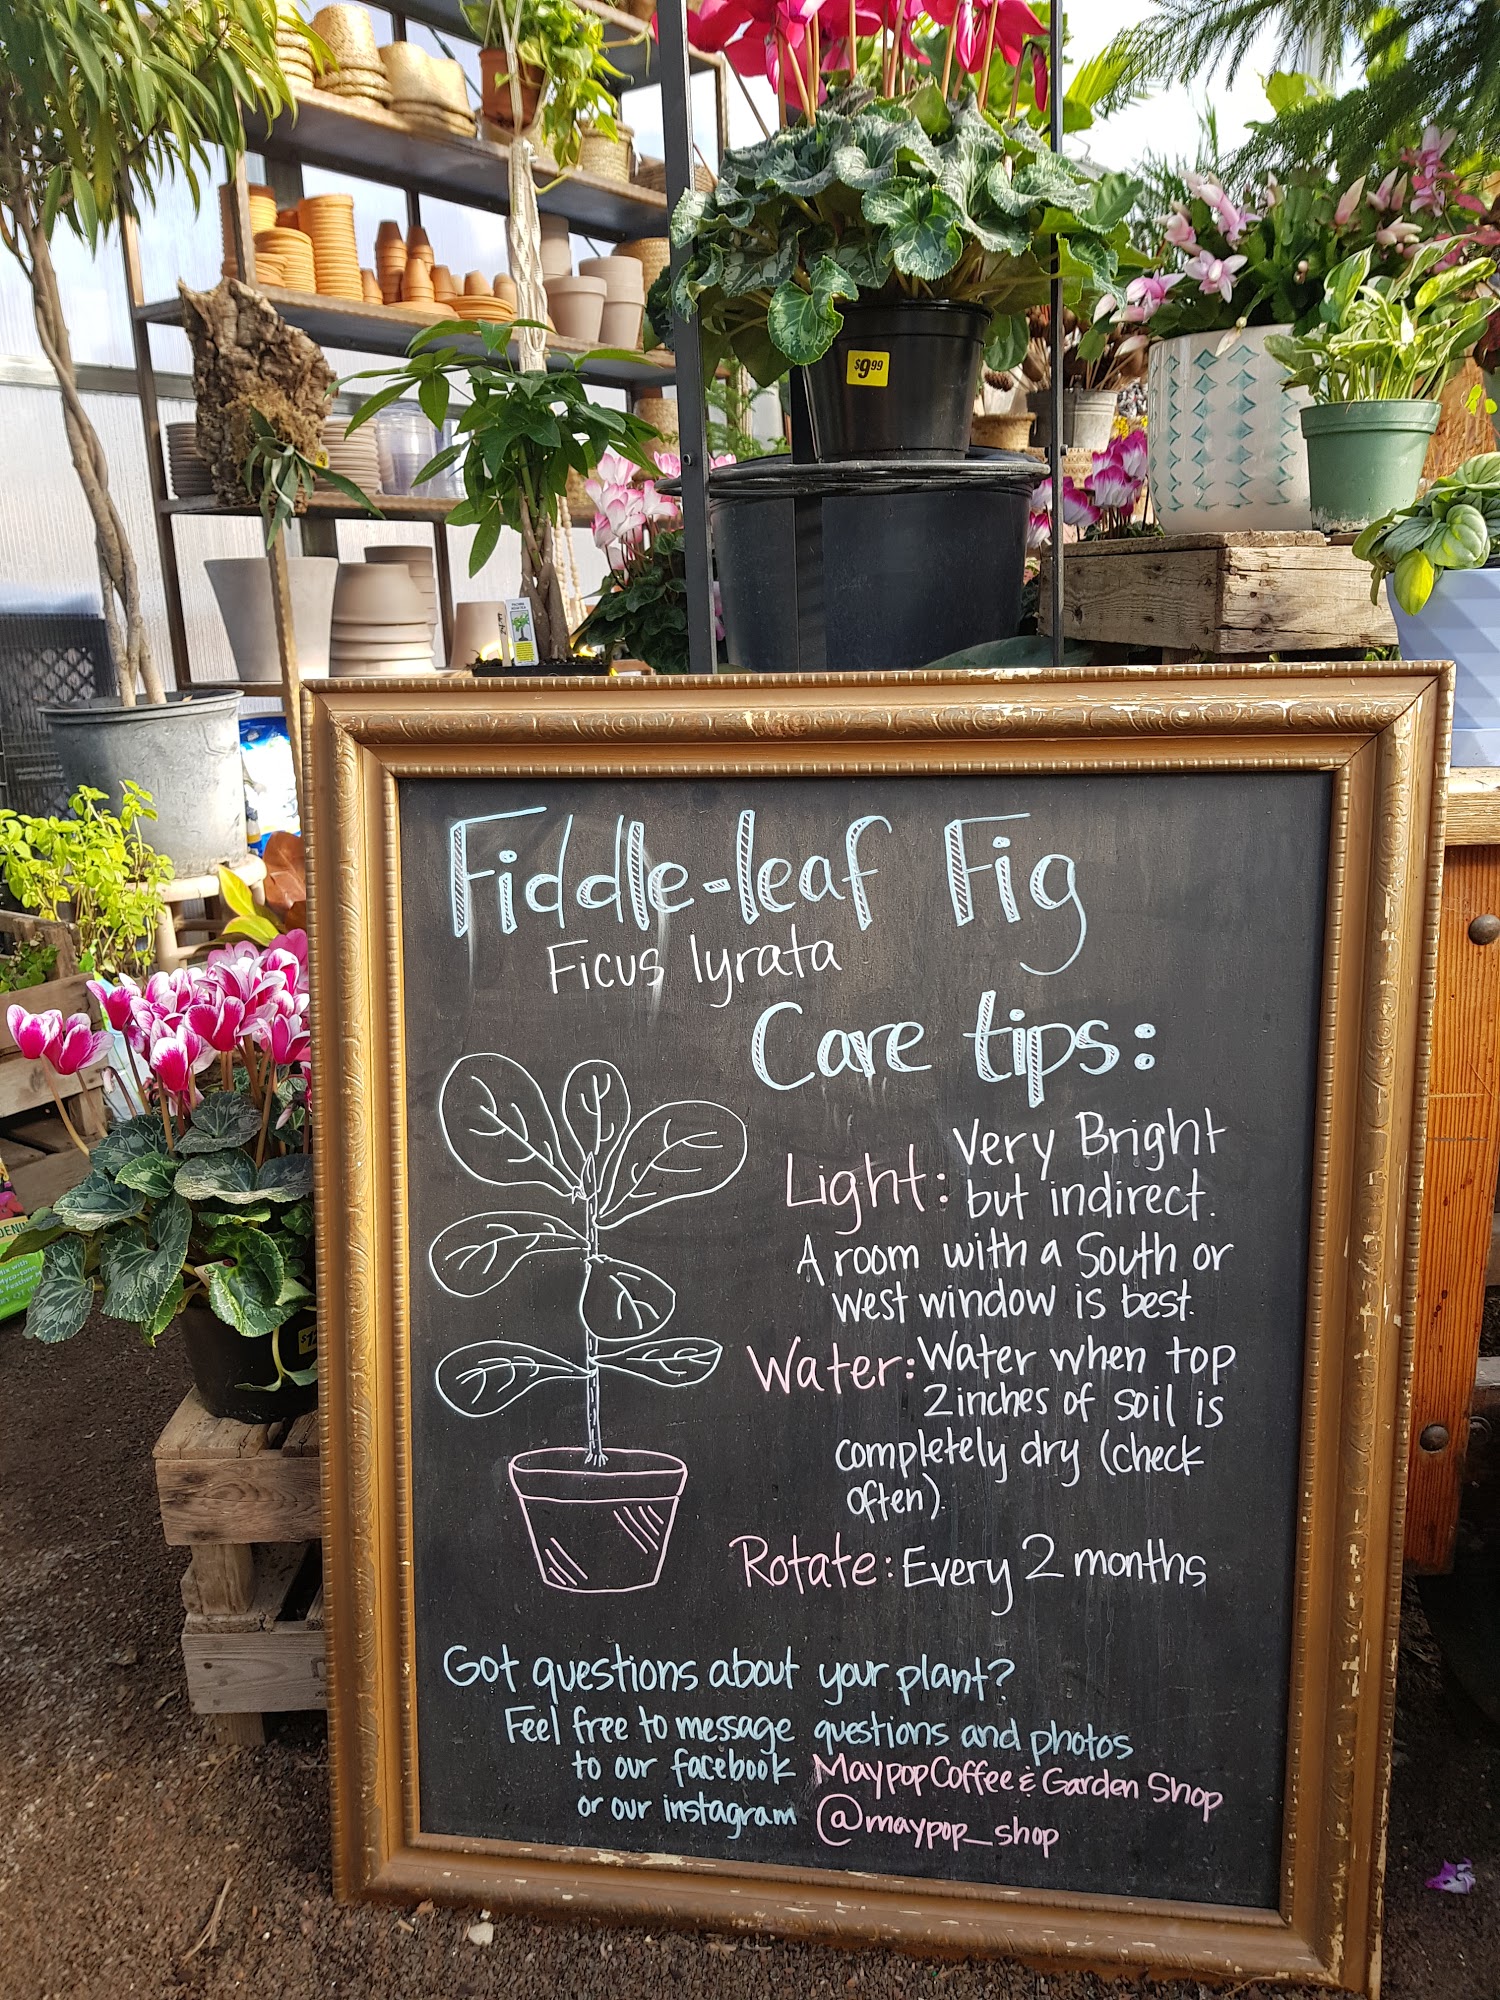 $9.99
Fiddle-leaf Fig
Ficus lyrata
Care tips:
Light: Very Bright
but indirect.
A room with a South or
west window is best.
Water: Water when top
2 inches of soil is
completely dry (check
often).
Rotate: Every 2 months
Got questions about your plant?
Feel free to message questions and photos
to our facebook Maypop Coffee & Garden Shop
or our instagram @maypop_shop